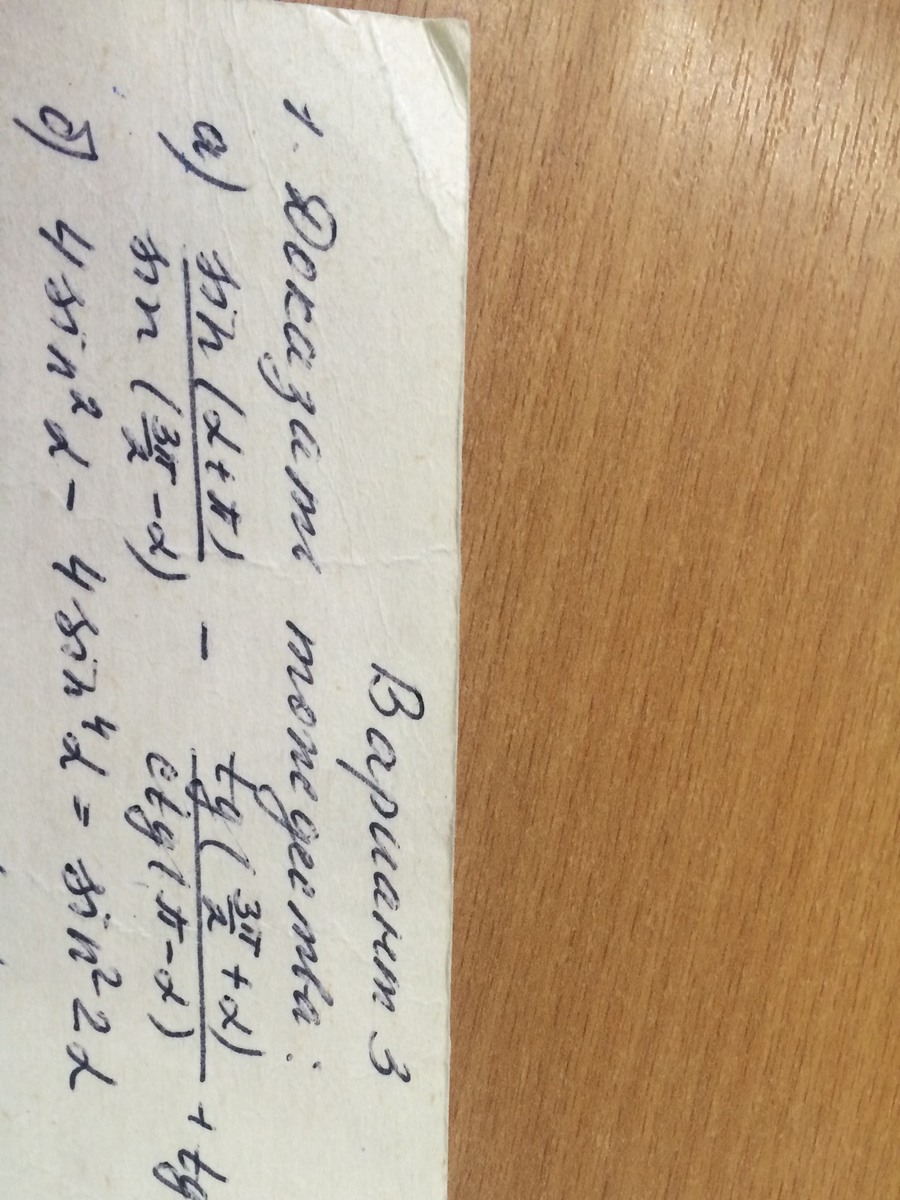 Вариант 3
1. Доказат тождества:
а) sin(α+π)/sin(3π/2-α) - tg(3π/2+α)/ctg(π-α) + tg
б) 4sin²α - 4sin⁴α = sin²2α